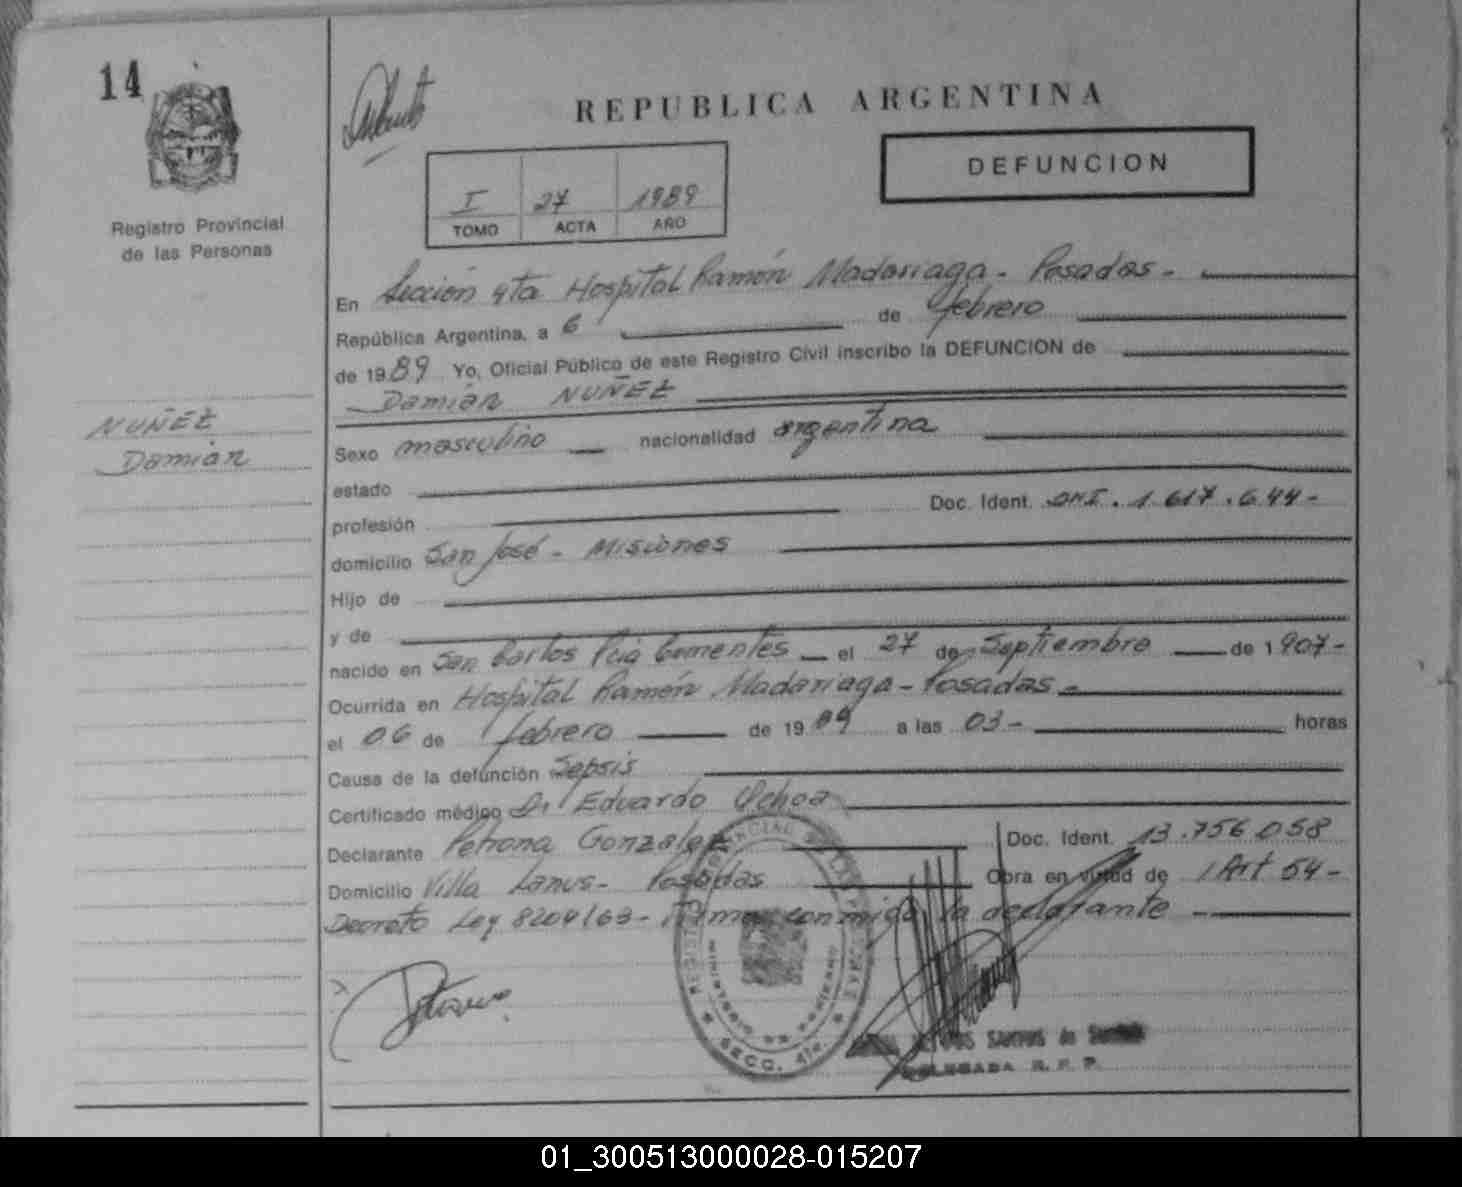 14
Registro Provincial
de las Personas
NUÑEZ
Damián
REPUBLICA ARGENTINA
DEFUNCION
I 27 1989
TOMO ACTA AÑO
En Sección 4ta Hospital Ramón Madariaga - Posadas -
República Argentina, a 6 de febrero
de 1989 Yo, Oficial Público de este Registro Civil inscribo la DEFUNCION de
Damián NUÑEZ
Sexo masculino nacionalidad argentina
estado
profesión Doc. Ident. DNI. 1.617.644-
domicilio San José - Misiones
Hijo de
y de
nacido en San Carlos Pcia Corrientes el 27 de Septiembre de 1907-
Ocurrida en Hospital Ramón Madariaga - Posadas -
el 06 de febrero de 1989 a las 03- horas
Causa de la defunción Sepsis
Certificado médico Dr Eduardo Ochoa
Declarante Petrona Gonzalez Doc. Ident. 13.756.058
Domicilio Villa Lanus - Posadas Obra en virtud de / Art 54-
Decreto Ley 8204/63 - Firma conmigo la declarante -
REGISTRO PROVINCIAL DE LAS PERSONAS
MINISTERIO DE GOBIERNO
SECC. 4ta.
SANTOS de
DELEGADA R. P. P.
01_300513000028-015207